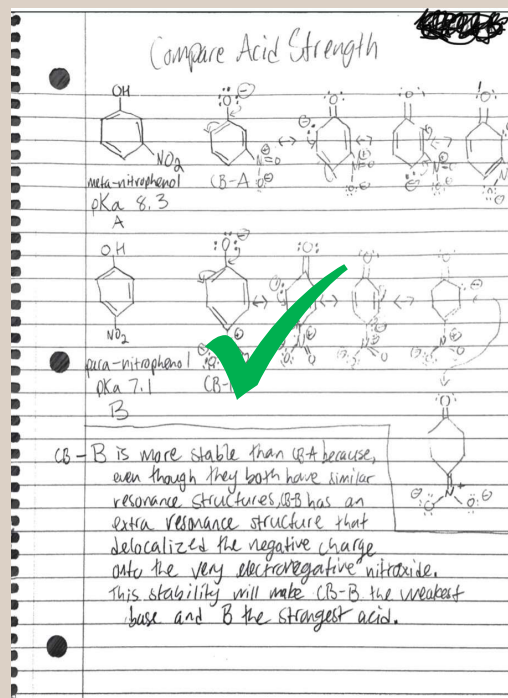 Compare Acid Strength
OH
NO₂
meta-nitrophenol
CB-A
pKa 8.3
A
OH
NO₂
para-nitrophenol
pKa 7.1
B
CB-B is more stable than CB-A because,
even though they both have similar
resonance structures, CB-B has an
extra resonance structure that
delocalized the negative charge
onto the very electronegative nitroxide.
This stability will make CB-B the weakest
base and B the strongest acid.